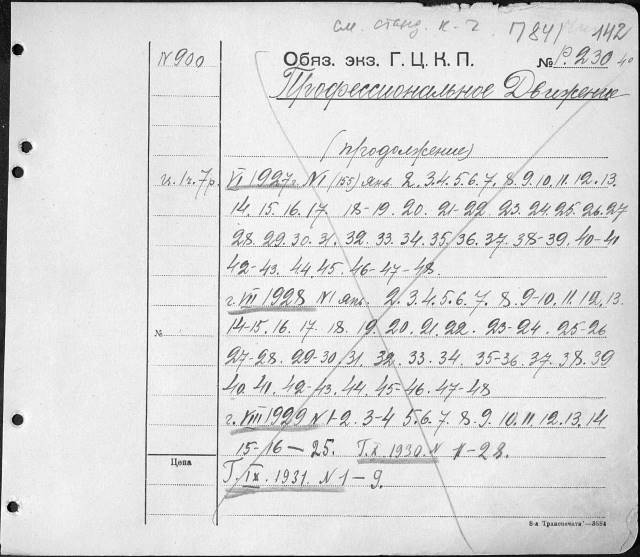 см. станд. к-ч П841 142
N 900 Обяз. экз. Г. Ц. К. П. № Р. 230 40
Профессиональное Движение
(продолжение)
ц. 1ч. 7р. VI 1927г. N1 (155) янв. 2. 3. 4. 5. 6. 7. 8. 9. 10. 11. 12. 13.
14. 15. 16. 17 18-19. 20. 21-22. 23. 24. 25. 26. 27
28. 29. 30. 31. 32. 33. 34. 35. 36. 37. 38-39. 40-41
42-43. 44. 45. 46-47-48.
г. VII 1928 N1 янв. 2. 3. 4. 5. 6. 7. 8. 9-10. 11. 12. 13.
№ 14-15. 16. 17. 18. 19. 20. 21. 22. 23-24. 25-26
27-28. 29-30/31. 32. 33. 34. 35-36. 37. 38. 39
40. 41. 42-43. 44. 45-46. 47-48
г. VIII 1929 N 1-2. 3-4 5. 6. 7. 8. 9. 10. 11. 12. 13. 14
15-16-25. Г. X. 1930. N 1-28.
Цена
Г. IX. 1931. N 1-9.
8-я "Транспечать"—3684